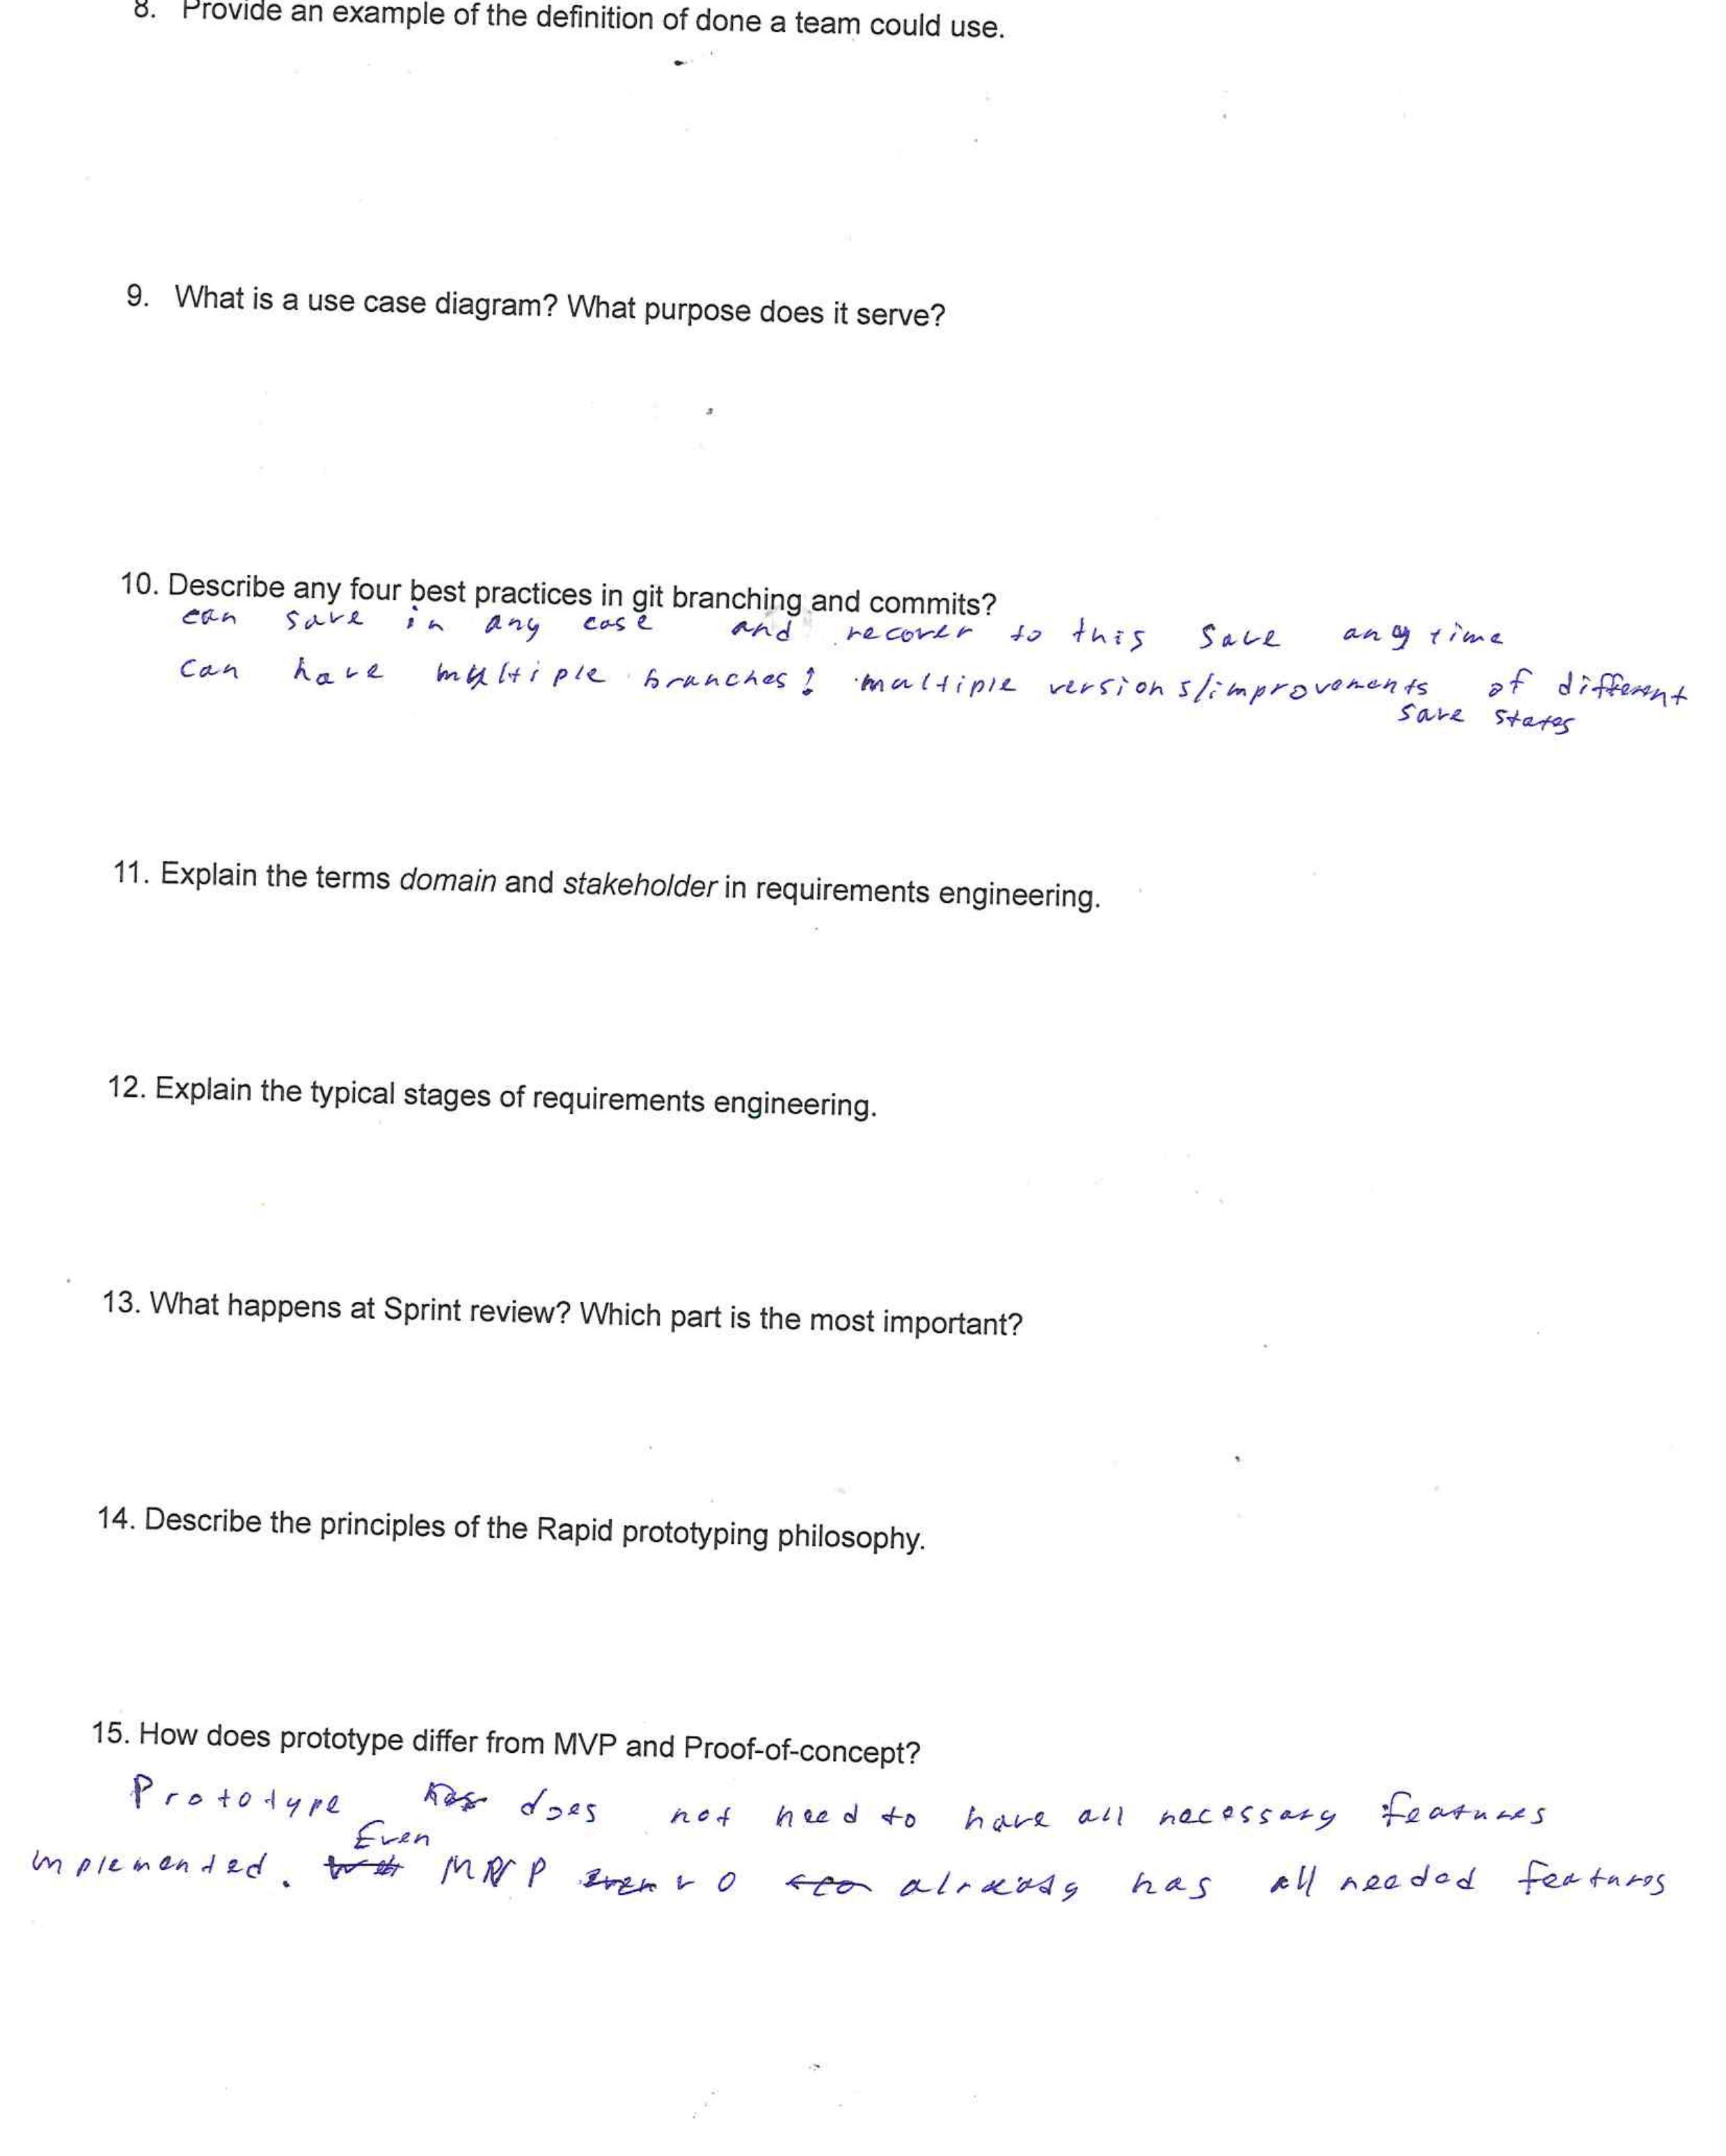 8. Provide an example of the definition of done a team could use.
9. What is a use case diagram? What purpose does it serve?
10. Describe any four best practices in git branching and commits?
can save in any case and recover to this save any time
can have multiple branches: multiple versions/improvements of different
save states
11. Explain the terms domain and stakeholder in requirements engineering.
12. Explain the typical stages of requirements engineering.
13. What happens at Sprint review? Which part is the most important?
14. Describe the principles of the Rapid prototyping philosophy.
15. How does prototype differ from MVP and Proof-of-concept?
Prototype does not need to have all necessary features
Even
implemented. MVP already has all needed features